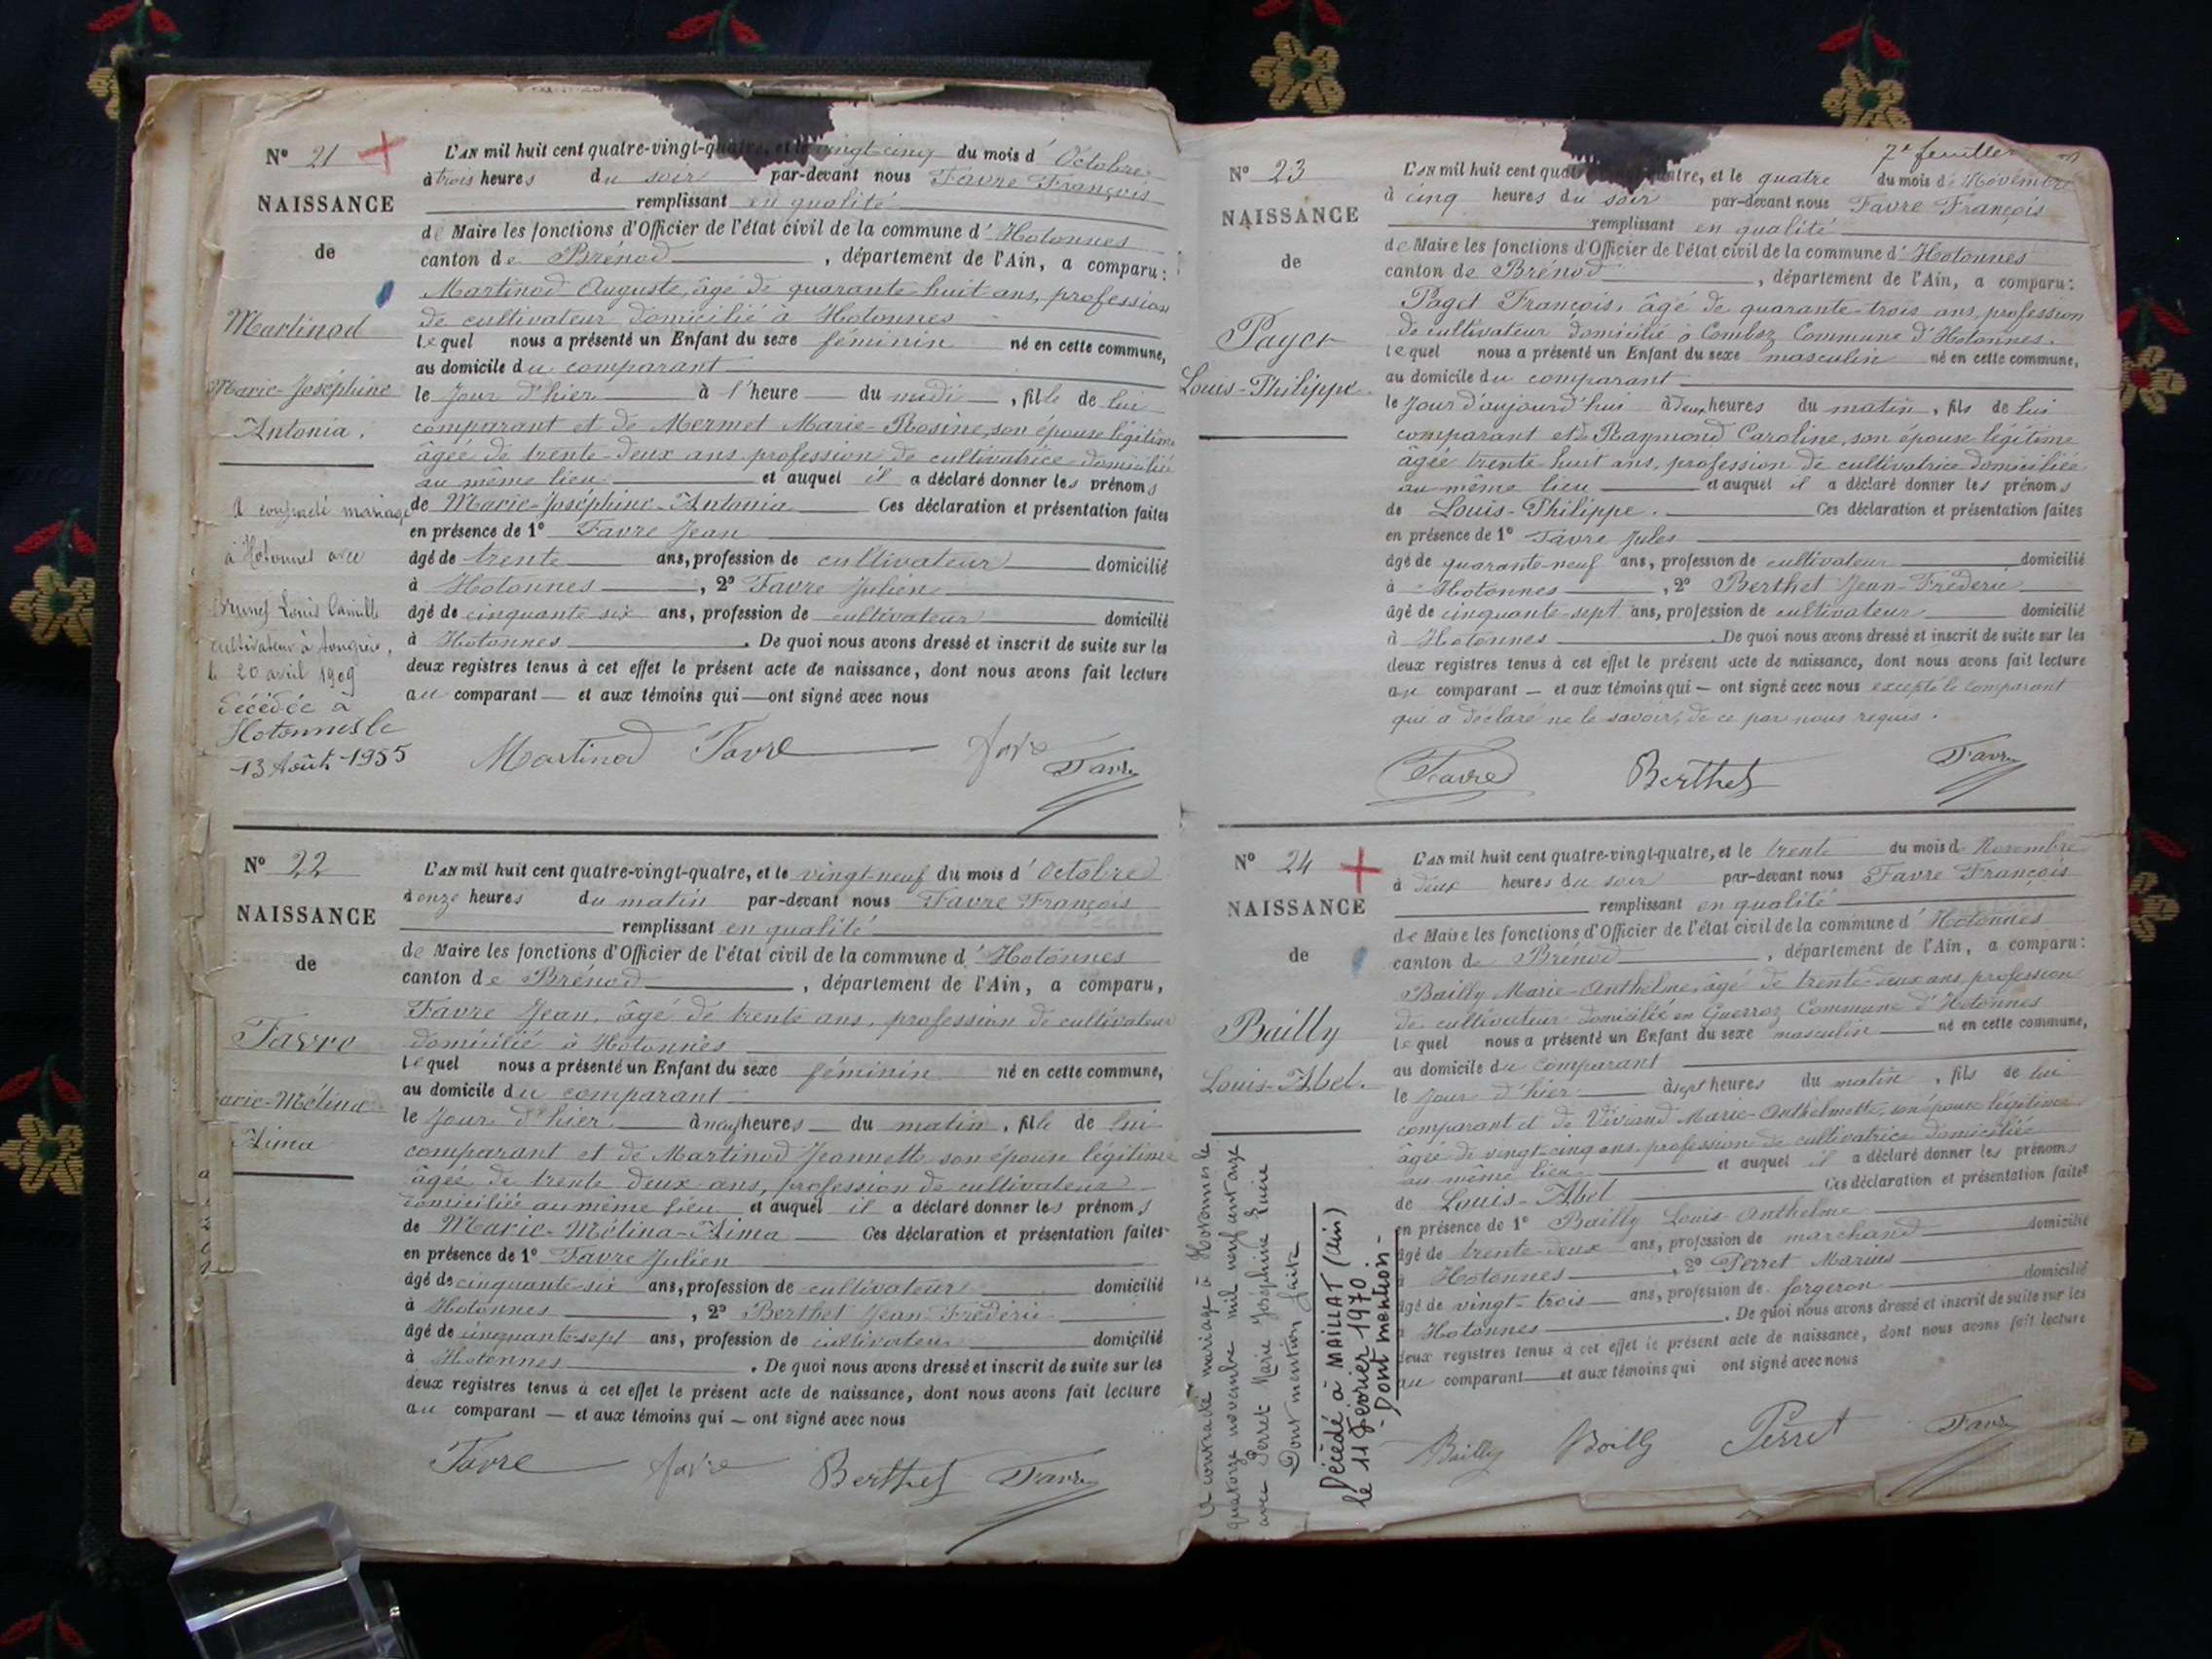 Nº 21
NAISSANCE
de
Martinod
Marie-Joséphine
Antonia.
A contracté mariage
à Hotonnes avec
Brunet Louis Camille
cultivateur à Songieu,
le 20 avril 1909
Décédée à
Hotonnes le
13 Août 1955
L'AN mil huit cent quatre-vingt-quatre, et le vingt-cinq du mois d'Octobre
à trois heures du soir par-devant nous Favre François
remplissant en qualité
de Maire les fonctions d'Officier de l'état civil de la commune d'Hotonnes
canton de Brénod, département de l'Ain, a comparu:
Martinod Auguste, âgé de quarante-huit ans, profession
de cultivateur domicilié à Hotonnes
lequel nous a présenté un Enfant du sexe féminin né en cette commune,
au domicile du comparant
le jour d'hier à l'heure du midi, fille de lui
comparant et de Mermet Marie-Rosine, son épouse légitime
âgée de trente-deux ans profession de cultivatrice domiciliée
au même lieu et auquel il a déclaré donner les prénoms
de Marie-Joséphine-Antonia Ces déclaration et présentation faites
en présence de 1º Favre Jean
âgé de trente ans, profession de cultivateur domicilié
à Hotonnes, 2º Favre Julien
âgé de cinquante-six ans, profession de cultivateur domicilié
à Hotonnes. De quoi nous avons dressé et inscrit de suite sur les
deux registres tenus à cet effet le présent acte de naissance, dont nous avons fait lecture
au comparant — et aux témoins qui — ont signé avec nous
Martinod Favre Favre Favre
Nº 22
NAISSANCE
de
Favre
Marie-Mélina
Zima
L'AN mil huit cent quatre-vingt-quatre, et le vingt-neuf du mois d'Octobre
à onze heures du matin par-devant nous Favre François
remplissant en qualité
de Maire les fonctions d'Officier de l'état civil de la commune d'Hotonnes
canton de Brénod, département de l'Ain, a comparu,
Favre Jean, âgé de trente ans, profession de cultivateur
domicilié à Hotonnes
lequel nous a présenté un Enfant du sexe féminin né en cette commune,
au domicile du comparant
le jour d'hier à neuf heures du matin, fille de lui
comparant et de Martinod Jeannette son épouse légitime
âgée de trente deux ans, profession de cultivateur
domiciliée au même lieu et auquel il a déclaré donner les prénoms
de Marie-Mélina-Zima Ces déclaration et présentation faites
en présence de 1º Favre Julien
âgé de cinquante-six ans, profession de cultivateur domicilié
à Hotonnes, 2º Berthet Jean-Fréderic
âgé de cinquante-sept ans, profession de cultivateur domicilié
à Hotonnes. De quoi nous avons dressé et inscrit de suite sur les
deux registres tenus à cet effet le présent acte de naissance, dont nous avons fait lecture
au comparant — et aux témoins qui — ont signé avec nous
Favre Favre Berthet Favre
7e feuillet
Nº 23
NAISSANCE
de
Paget
Louis-Philippe
L'AN mil huit cent quatre-vingt-quatre, et le quatre du mois de Novembre
à cinq heures du soir par-devant nous Favre François
remplissant en qualité
de Maire les fonctions d'Officier de l'état civil de la commune d'Hotonnes
canton de Brénod, département de l'Ain, a comparu:
Paget François, âgé de quarante-trois ans, profession
de cultivateur domicilié à Comboz Commune d'Hotonnes.
lequel nous a présenté un Enfant du sexe masculin né en cette commune,
au domicile du comparant
le jour d'aujourd'hui à deux heures du matin, fils de lui
comparant et de Raymond Caroline, son épouse légitime
âgée trente huit ans, profession de cultivatrice domiciliée
au même lieu et auquel il a déclaré donner les prénoms
de Louis-Philippe. Ces déclaration et présentation faites
en présence de 1º Favre Jules
âgé de quarante-neuf ans, profession de cultivateur domicilié
à Hotonnes, 2º Berthet Jean-Fréderic
âgé de cinquante-sept ans, profession de cultivateur domicilié
à Hotonnes. De quoi nous avons dressé et inscrit de suite sur les
deux registres tenus à cet effet le présent acte de naissance, dont nous avons fait lecture
au comparant — et aux témoins qui — ont signé avec nous excepté le comparant
qui a déclaré ne le savoir, de ce par nous requis.
Favre Berthet Favre
Nº 24
NAISSANCE
de
Bailly
Louis-Abel.
A contracté mariage à Hotonnes le
quatorze novembre mil neuf cent onze
avec Perret Marie Joséphine Lucie
Dont mention faite
Décédé à MAILLAT (Ain)
le 11 Février 1970.
- Dont mention -
L'AN mil huit cent quatre-vingt-quatre, et le trente du mois de Novembre
à deux heures du soir par-devant nous Favre François
remplissant en qualité
de Maire les fonctions d'Officier de l'état civil de la commune d'Hotonnes
canton de Brénod, département de l'Ain, a comparu:
Bailly Marie-Anthelme, âgé de trente-deux ans, profession
de cultivateur domicilié en Guerroz Commune d'Hotonnes
lequel nous a présenté un Enfant du sexe masculin né en cette commune,
au domicile du comparant
le jour d'hier à sept heures du matin, fils de lui
comparant et de Viviand Marie-Anthelmette, son épouse légitime
âgée de vingt-cinq ans, profession de cultivatrice domiciliée
au même lieu et auquel il a déclaré donner les prénoms
de Louis-Abel Ces déclaration et présentation faites
en présence de 1º Bailly Louis-Anthelme
âgé de trente-deux ans, profession de marchand domicilié
à Hotonnes, 2º Perret Marius
âgé de vingt-trois ans, profession de forgeron domicilié
à Hotonnes. De quoi nous avons dressé et inscrit de suite sur les
deux registres tenus à cet effet le présent acte de naissance, dont nous avons fait lecture
au comparant — et aux témoins qui ont signé avec nous
Bailly Bailly Perret Favre